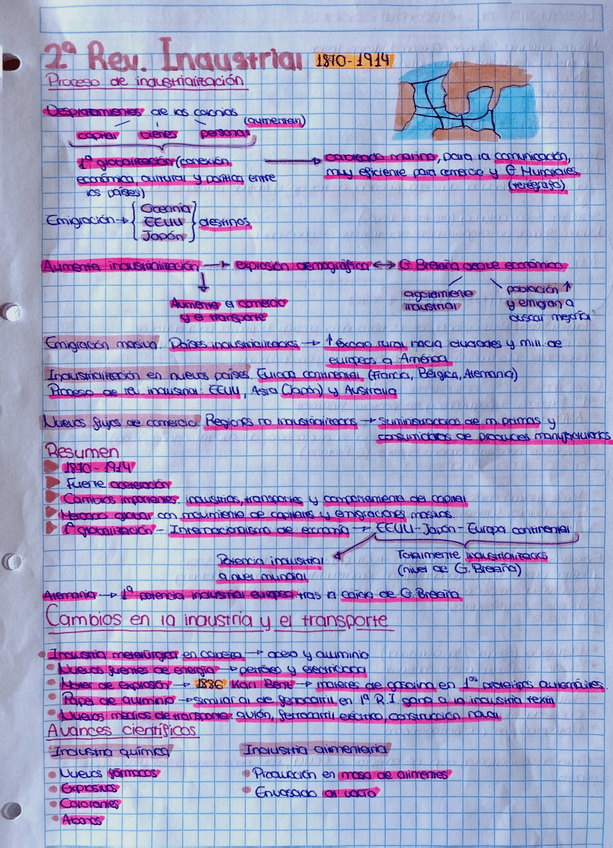 2ª Rev. Industrial 1870-1914
Proceso de industrialización
Desplazamientos de los colonos
(aumentan)
capital bienes personas
1ª globalización (conexión → cableado marino, para la comunicación,
económica cultural y política entre muy eficiente para comercio y G. Mundiales
los países) (telégrafo)
Emigración → { Oceanía
EEUU } destinos
Japón
Aumenta industrialización → explosión demográfica ↔ G. Bretaña declive económico
Aumenta el comercio
y el transporte
agotamiento
industrial
población ↑
y emigran a
buscar mejoría
Emigración masiva: Países industrializados → ↑ éxodo rural hacia ciudades y mill. de
europeos a América
Industrialización en nuevos países: Europa continental (Francia, Bélgica, Alemania)
Proceso de rev. industrial: EEUU, Asia (Japón) y Australia
Nuevos flujos de comercio: Regiones no industrializadas → Suministradoras de m. primas y
consumidoras de productos manufacturados
Resumen
1870-1914
Fuerte aceleración
Cambios importantes industrias, transportes y comportamiento del capital
Mercado global con movimiento de capitales y emigraciones masivas
1ª globalización - Internacionalismo de economía → EEUU-Japón-Europa continental
Potencia industrial
a nivel mundial
Totalmente industrializados
(nivel de G. Bretaña)
Alemania → 1ª potencia industrial europea tras la caída de G. Bretaña
Cambios en la industria y el transporte
Industria metalúrgica en cabeza → acero y aluminio
Nuevas fuentes de energía → petróleo y electricidad
Motor de explosión → 1886 Karl Benz → motores de gasolina en 1os prototipos automóviles
Papel de aluminio → similar al de ferrocarril en 1ª R.I gana a la industria textil
Nuevos medios de transporte: avión, ferrocarril eléctrico, construcción naval
Avances científicos
Industria química
Nuevos fármacos
Explosivos
Colorantes
Abonos
Industria alimentaria
Producción en masa de alimentos
Envasado al vacío